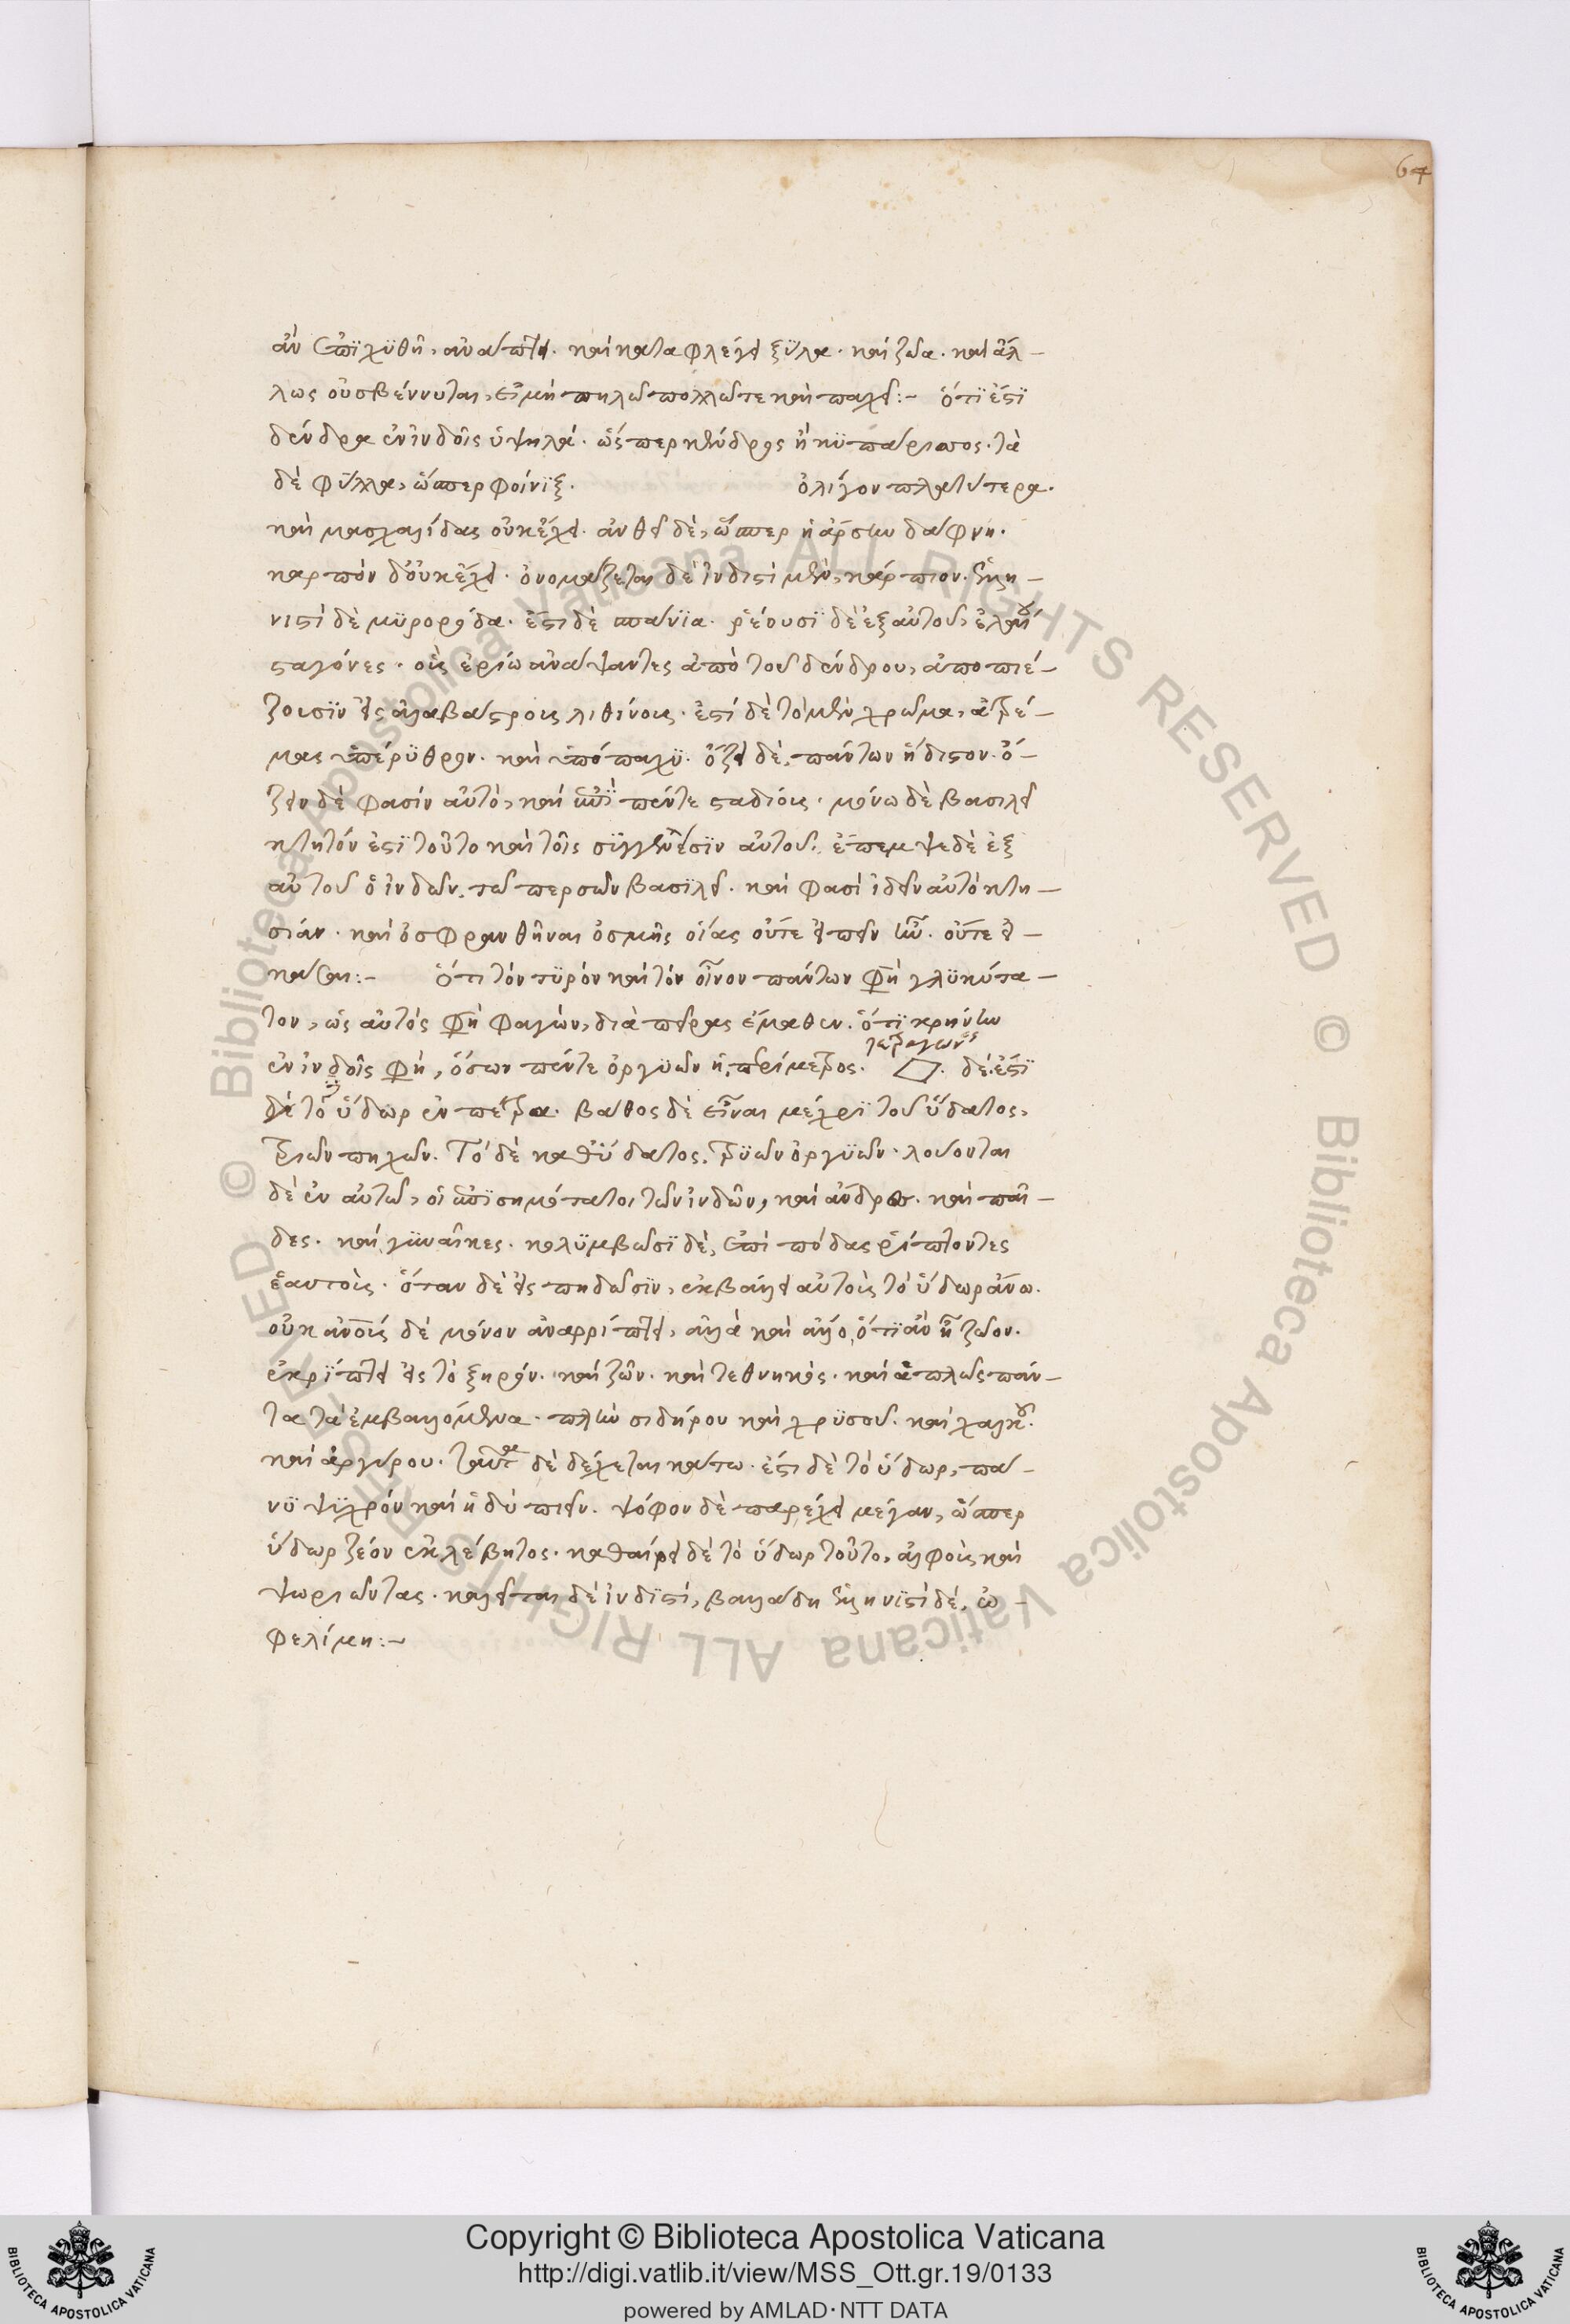 67
ἂν ἐπιχϋθῆ, ἀνάπτει. καὶ καταφλέγει ξύλα. καὶ ζῶα. καὶ ἄλ-
λως οὐ σβέννυται, εἰ μὴ πηλῶ πολλῶ τε καὶ παχεῖ:- ὅτι ἐστὶ
δένδρα ἐν ἰνδοῖς ὑψηλά. ὥσπερ κέδρος ἢ κυπάρισσος. τὰ
δὲ φύλλα, ὥσπερ φοίνιξ. ὀλίγον πλατύτερα.
καὶ μασχαλίδας οὐκ ἔχει. ἀνθεῖ δὲ, ὥσπερ ἡ ἄρσην δάφνη.
καρπὸν δ' οὐκ ἔχει. ὀνομάζεται δὲ ἰνδιστὶ μὲν, κάρπιον. ἑλλη-
νιστὶ δὲ μυρορόδα. ἔστι δὲ σπάνια. ῥέουσι δὲ ἐξ αὐτοῦ, ἐλαίου
σταγόνες. οὓς ἐρίω ἀνάψαντες ἀπὸ τοῦ δένδρου, ἀποπιέ-
ζουσιν εἰς ἀλαβάστρους λιθίνους. ἐστὶ δὲ τὸ μὲν χρῶμα, ἀτρέ-
μας ὑπέρυθρον. καὶ ὑπόπαχυ. ὄζει δὲ, πάντων ἥδιστον. ὄ-
ζειν δὲ φασὶν αὐτὸ, καὶ ἐπὶ πέντε σταδίους. μόνω δὲ βασιλεῖ
κτητόν ἐστι τοῦτο καὶ τοῖς συγγενέσιν αὐτοῦ. ἔπεμψε δὲ ἐξ
αὐτοῦ ὁ ἰνδῶν, τῶ περσῶν βασιλεῖ. καὶ φασὶ ἰδεῖν αὐτὸ κτη-
σίαν. καὶ ὀσφρανθῆναι ὀσμῆς οἵας οὔτε εἰπεῖν ἦν. οὔτε εἰ-
κάσαι:- Ὅτι τὸν τυρὸν καὶ τὸν οἶνον πάντων φη γλυκύτα-
τον, ὡς αὐτὸς φη φαγὼν, διὰ πείρας ἔμαθεν. ὅτι κρήνην
τετράγωνος
ἐν ἰνδοῖς φη, ὅσων πέντε ὀργυιῶν ἡ περίμετρος. δέ ἐστι
δὲ τὸ ὕδωρ ἐν πέτρα. βάθος δὲ εἶναι μέχρι τοῦ ὕδατος,
τριῶν πηχῶν. Τὸ δὲ καθ' ὕδατος, τριῶν ὀργυιῶν. λούονται
δὲ ἐν αὐτῶ, οἱ ἐπισημότατοι τῶν ἰνδῶν, καὶ ἄνδρες. καὶ παῖ-
δες. καὶ γυναῖκες. κολυμβῶσι δὲ, ἐπὶ πόδας ῥίπτοντες
ἑαυτοὺς. ὅταν δὲ εἰσπηδῶσιν, ἐκβάλλει αὐτοὺς τὸ ὕδωρ ἄνω.
οὐκ ἀνους δὲ μόνον ἀναρρίπτει, ἀλλὰ καὶ ἄλλο, ὅτι ἂν ἦ ζῶον.
ἐκρίπτει εἰς τὸ ξηρόν. καὶ ζῶν. καὶ τεθνηκὸς. καὶ ἁπλῶς πάν-
τα τὰ ἐμβαλλόμενα. πλὴν σιδήρου καὶ χρυσοῦ. καὶ χαλκοῦ.
καὶ ἀργύρου. ταῦτα δὲ δέχεται κάτω. ἔστι δὲ τὸ ὕδωρ, πά-
νυ ψυχρὸν καὶ ἡδὺ πιεῖν. ψόφον δὲ παρέχει μέγαν, ὥσπερ
ὕδωρ ζέον ἐκ λέβητος. καθαίρει δὲ τὸ ὕδωρ τοῦτο, ἀλφοὺς καὶ
ψωριῶντας. καλεῖται δὲ ἰνδιστὶ, βαλλάδη ἑλληνιστὶ δὲ, ὠ-
φελίμη:-
© Biblioteca Apostolica Vaticana ALL RIGHTS RESERVED © Biblioteca Apostolica Vaticana ALL RIGHTS RESERVED
BIBLIOTECA APOSTOLICA VATICANA
Copyright © Biblioteca Apostolica Vaticana
http://digi.vatlib.it/view/MSS_Ott.gr.19/0133
powered by AMLAD·NTT DATA
BIBLIOTECA APOSTOLICA VATICANA